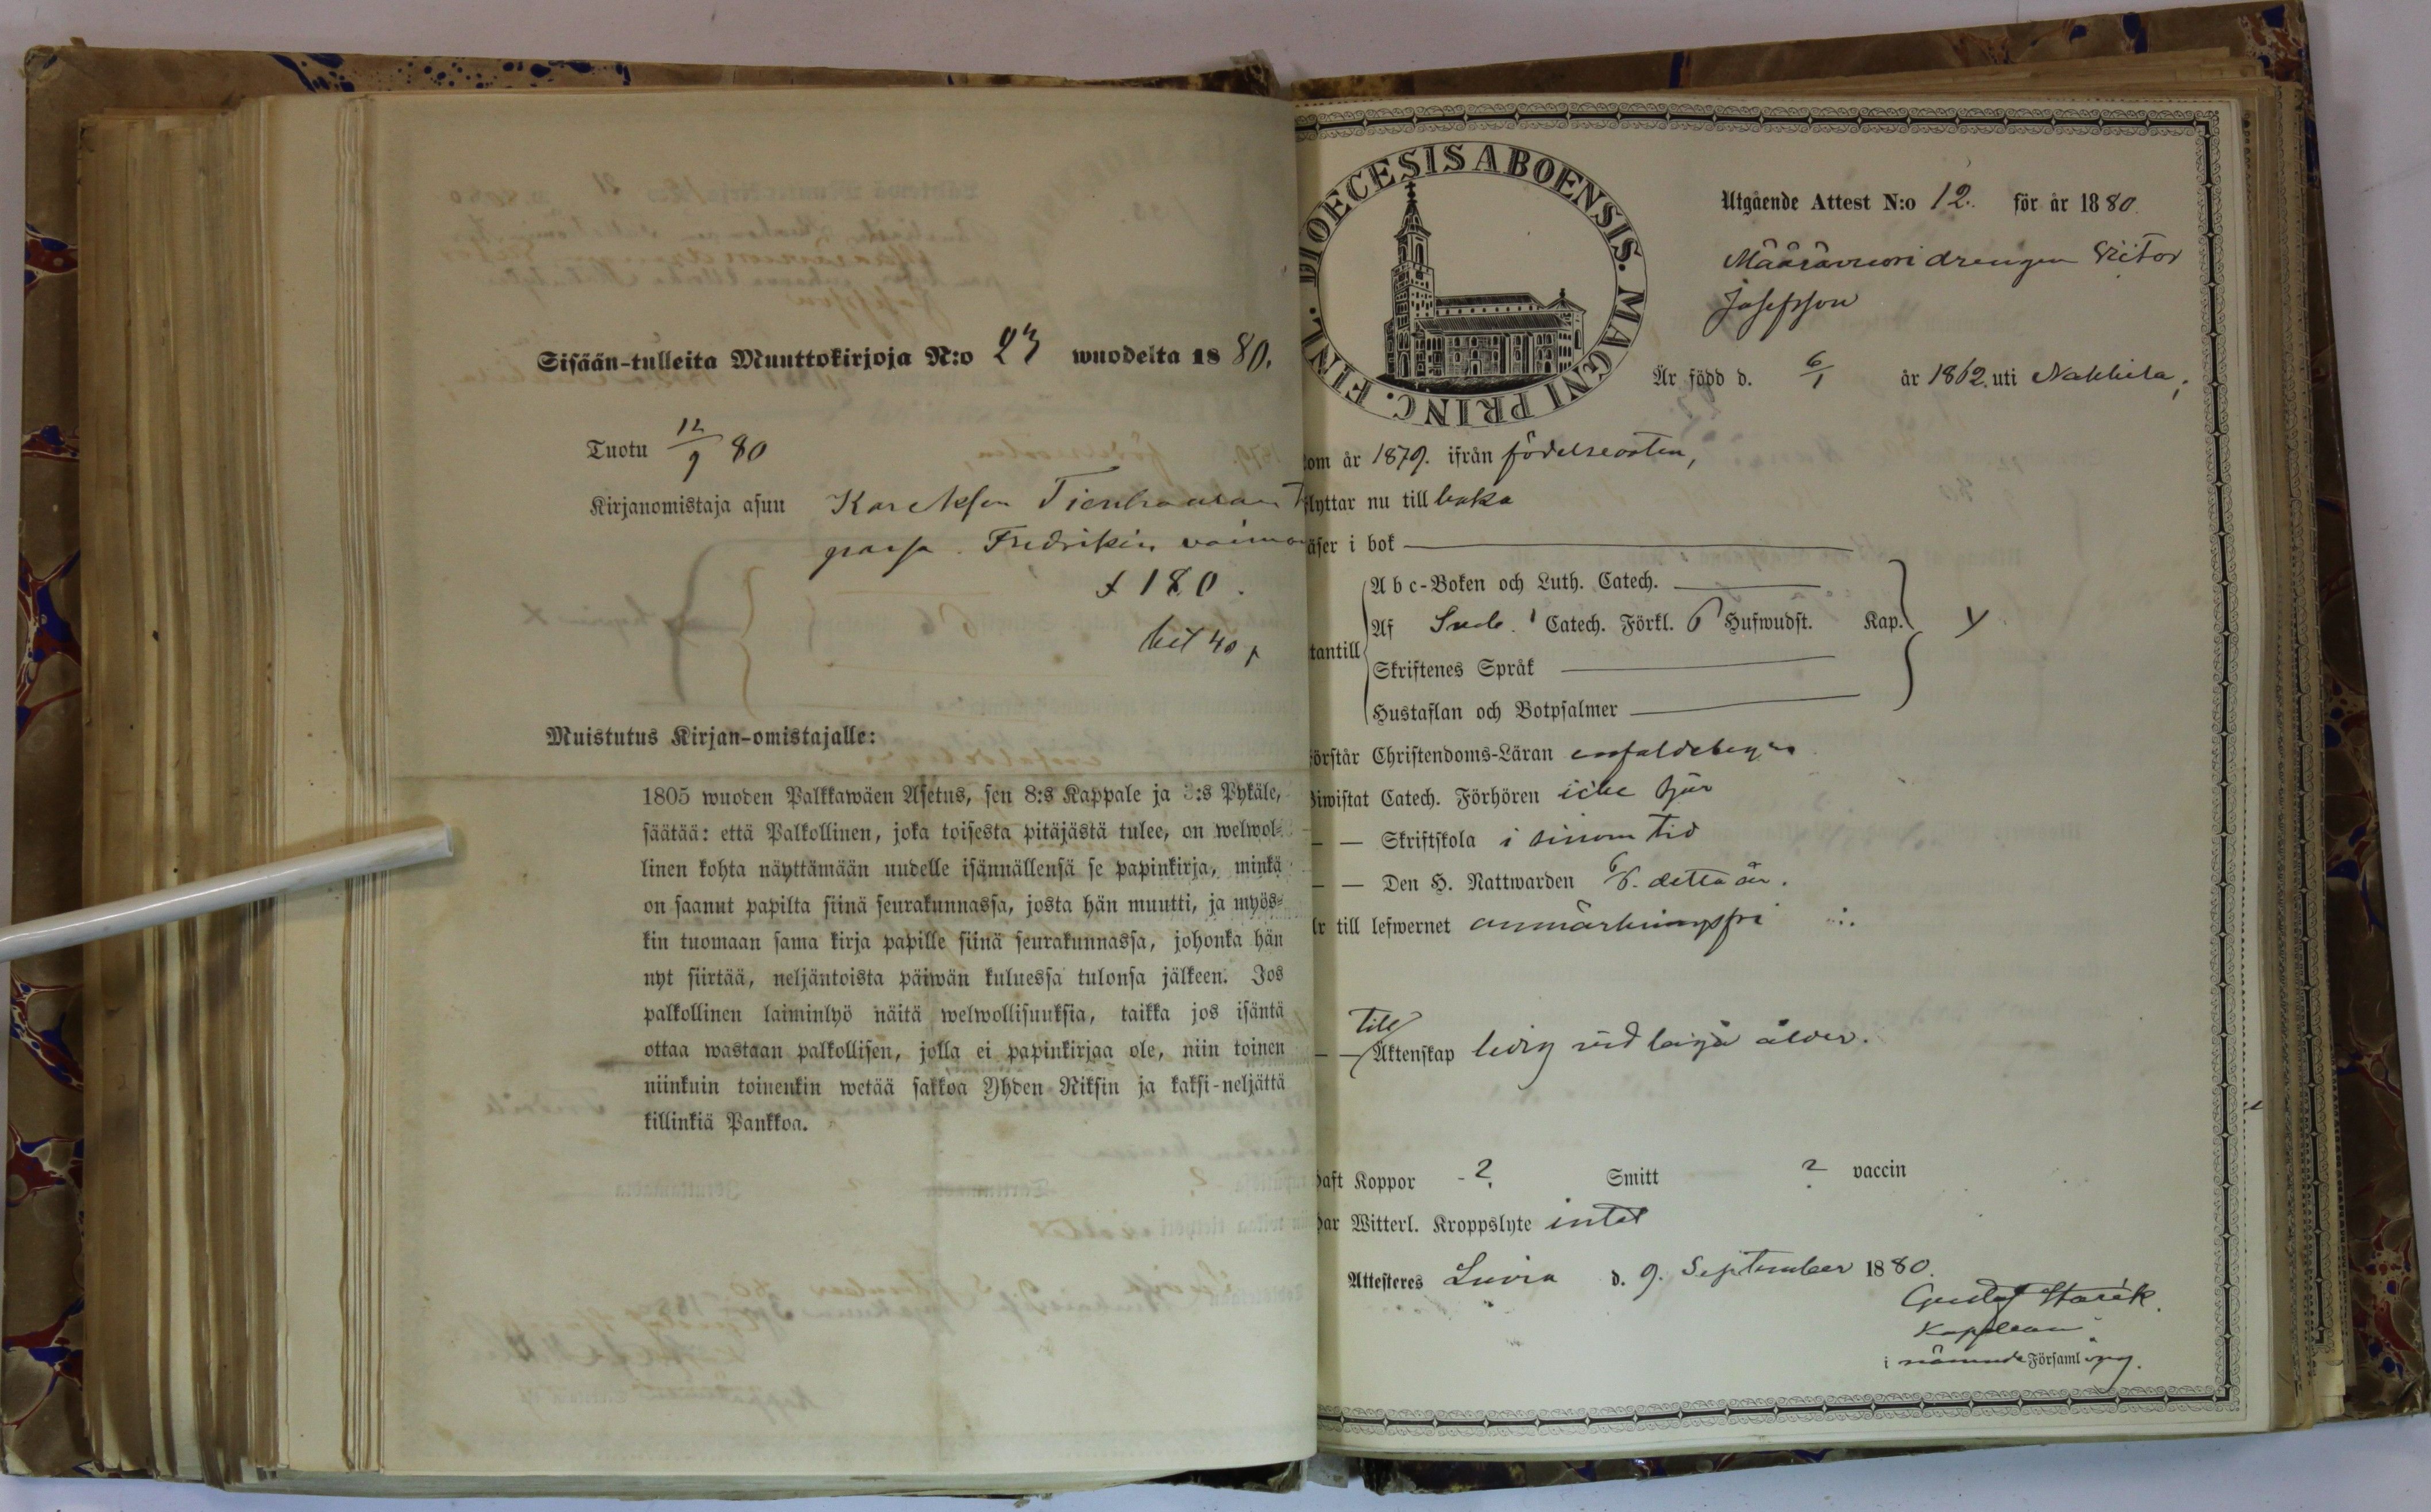 Sisään-tulleita Muuttokirjoja N:o 23 wuodelta 1880.
Tuotu 12/9 80
Kirjanomistaja asuu Tienhaaran
Fredrikin vaimo
180.
40 p
Muistutus Kirjan-omistajalle:
1805 wuoden Palkkawäen Asetus, sen 8:s Kappale ja 3:s Pykäle,
säätää: että Palkollinen, joka toisesta pitäjästä tulee, on welwol-
linen kohta näyttämään uudelle isännällensä se papinkirja, minkä
on saanut papilta siinä seurakunnassa, josta hän muutti, ja myös-
kin tuomaan sama kirja papille siinä seurakunnassa, johonka hän
nyt siirtää, neljäntoista päiwän kuluessa tulonsa jälkeen. Jos
palkollinen laiminlyö näitä welwollisuuksia, taikka jos isäntä
ottaa wastaan palkollisen, jolla ei papinkirjaa ole, niin toinen
niinkuin toinenkin wetää sakkoa Yhden Riksin ja kaksi-neljättä
killinkiä Pankkoa.
DIOECESIS ABOENSIS. MAGNI PRINC. FINL.
Utgående Attest N:o 12. för år 1880.
Määrävuori drengen Victor
Josefsson
Är född d. 6/1 år 1862. uti Nakkila,
om år 1879. ifrån födelseorten,
flyttar nu till baka
äser i bok
Abc-Boken och Luth. Catech.
Af Sveb. Catech. Förkl. 6 Hufwudst. Kap.
tantill
Skriftenes Språk
Hustaflan och Botpsalmer
förstår Christendoms-Läran enfaldeligen
Biwistat Catech. Förhören icke här
— — Skriftskola i sinom tid
— — Den H. Nattwarden 6/6. detta år.
Är till lefwernet anmärkningsfri
till
— — Äktenskap ledig vid laga ålder.
haft Koppor - ? Smitt ? vaccin
har Witterl. Kroppslyte intet
Attesteres Luvia d. 9. September 1880.
Gustaf Starck.
Kapellan
i nämnde Församling.